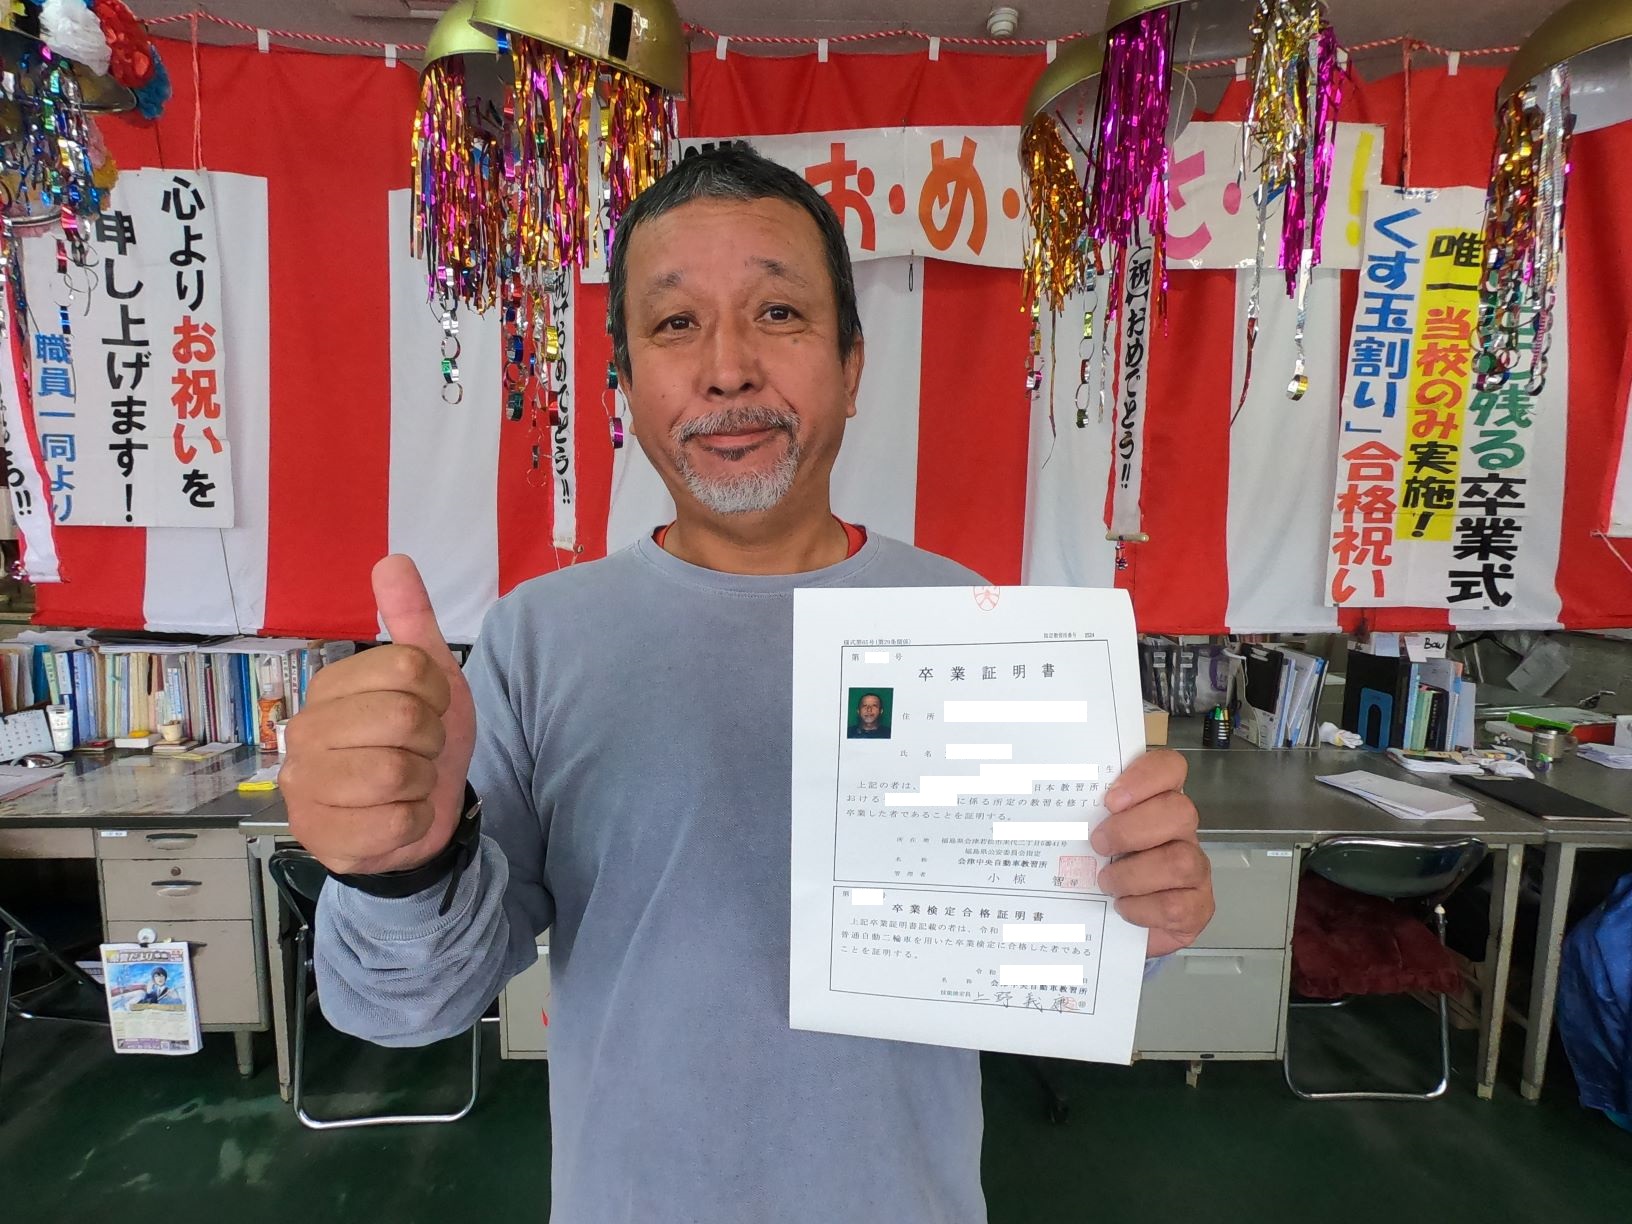 心よりお祝いを
申し上げます!
職員一同より
お・め・
祝!おめでとう!!
めでとう!!
残る卒業式
唯一当校のみ実施!
「くす玉割り」合格祝い
様式第05号(第29条関係)
指定教習所番号
第 号
卒業証明書
住 所
氏 名
生
上記の者は、 日本教習所に
おける に係る所定の教習を修了し
卒業した者であることを証明する。
所在地 福島県会津若松市 二丁目6番41号
福島県公安委員会指定
名 称 会津中央自動車教習所
管理者 小椋 智
第 号
卒業検定合格証明書
上記卒業証明書記載の者は、令和 日
普通自動二輪車を用いた卒業検定に合格した者である
ことを証明する。
令和 日
名 称 会津中央自動車教習所
技能検定員 上野義康
だより
Bow